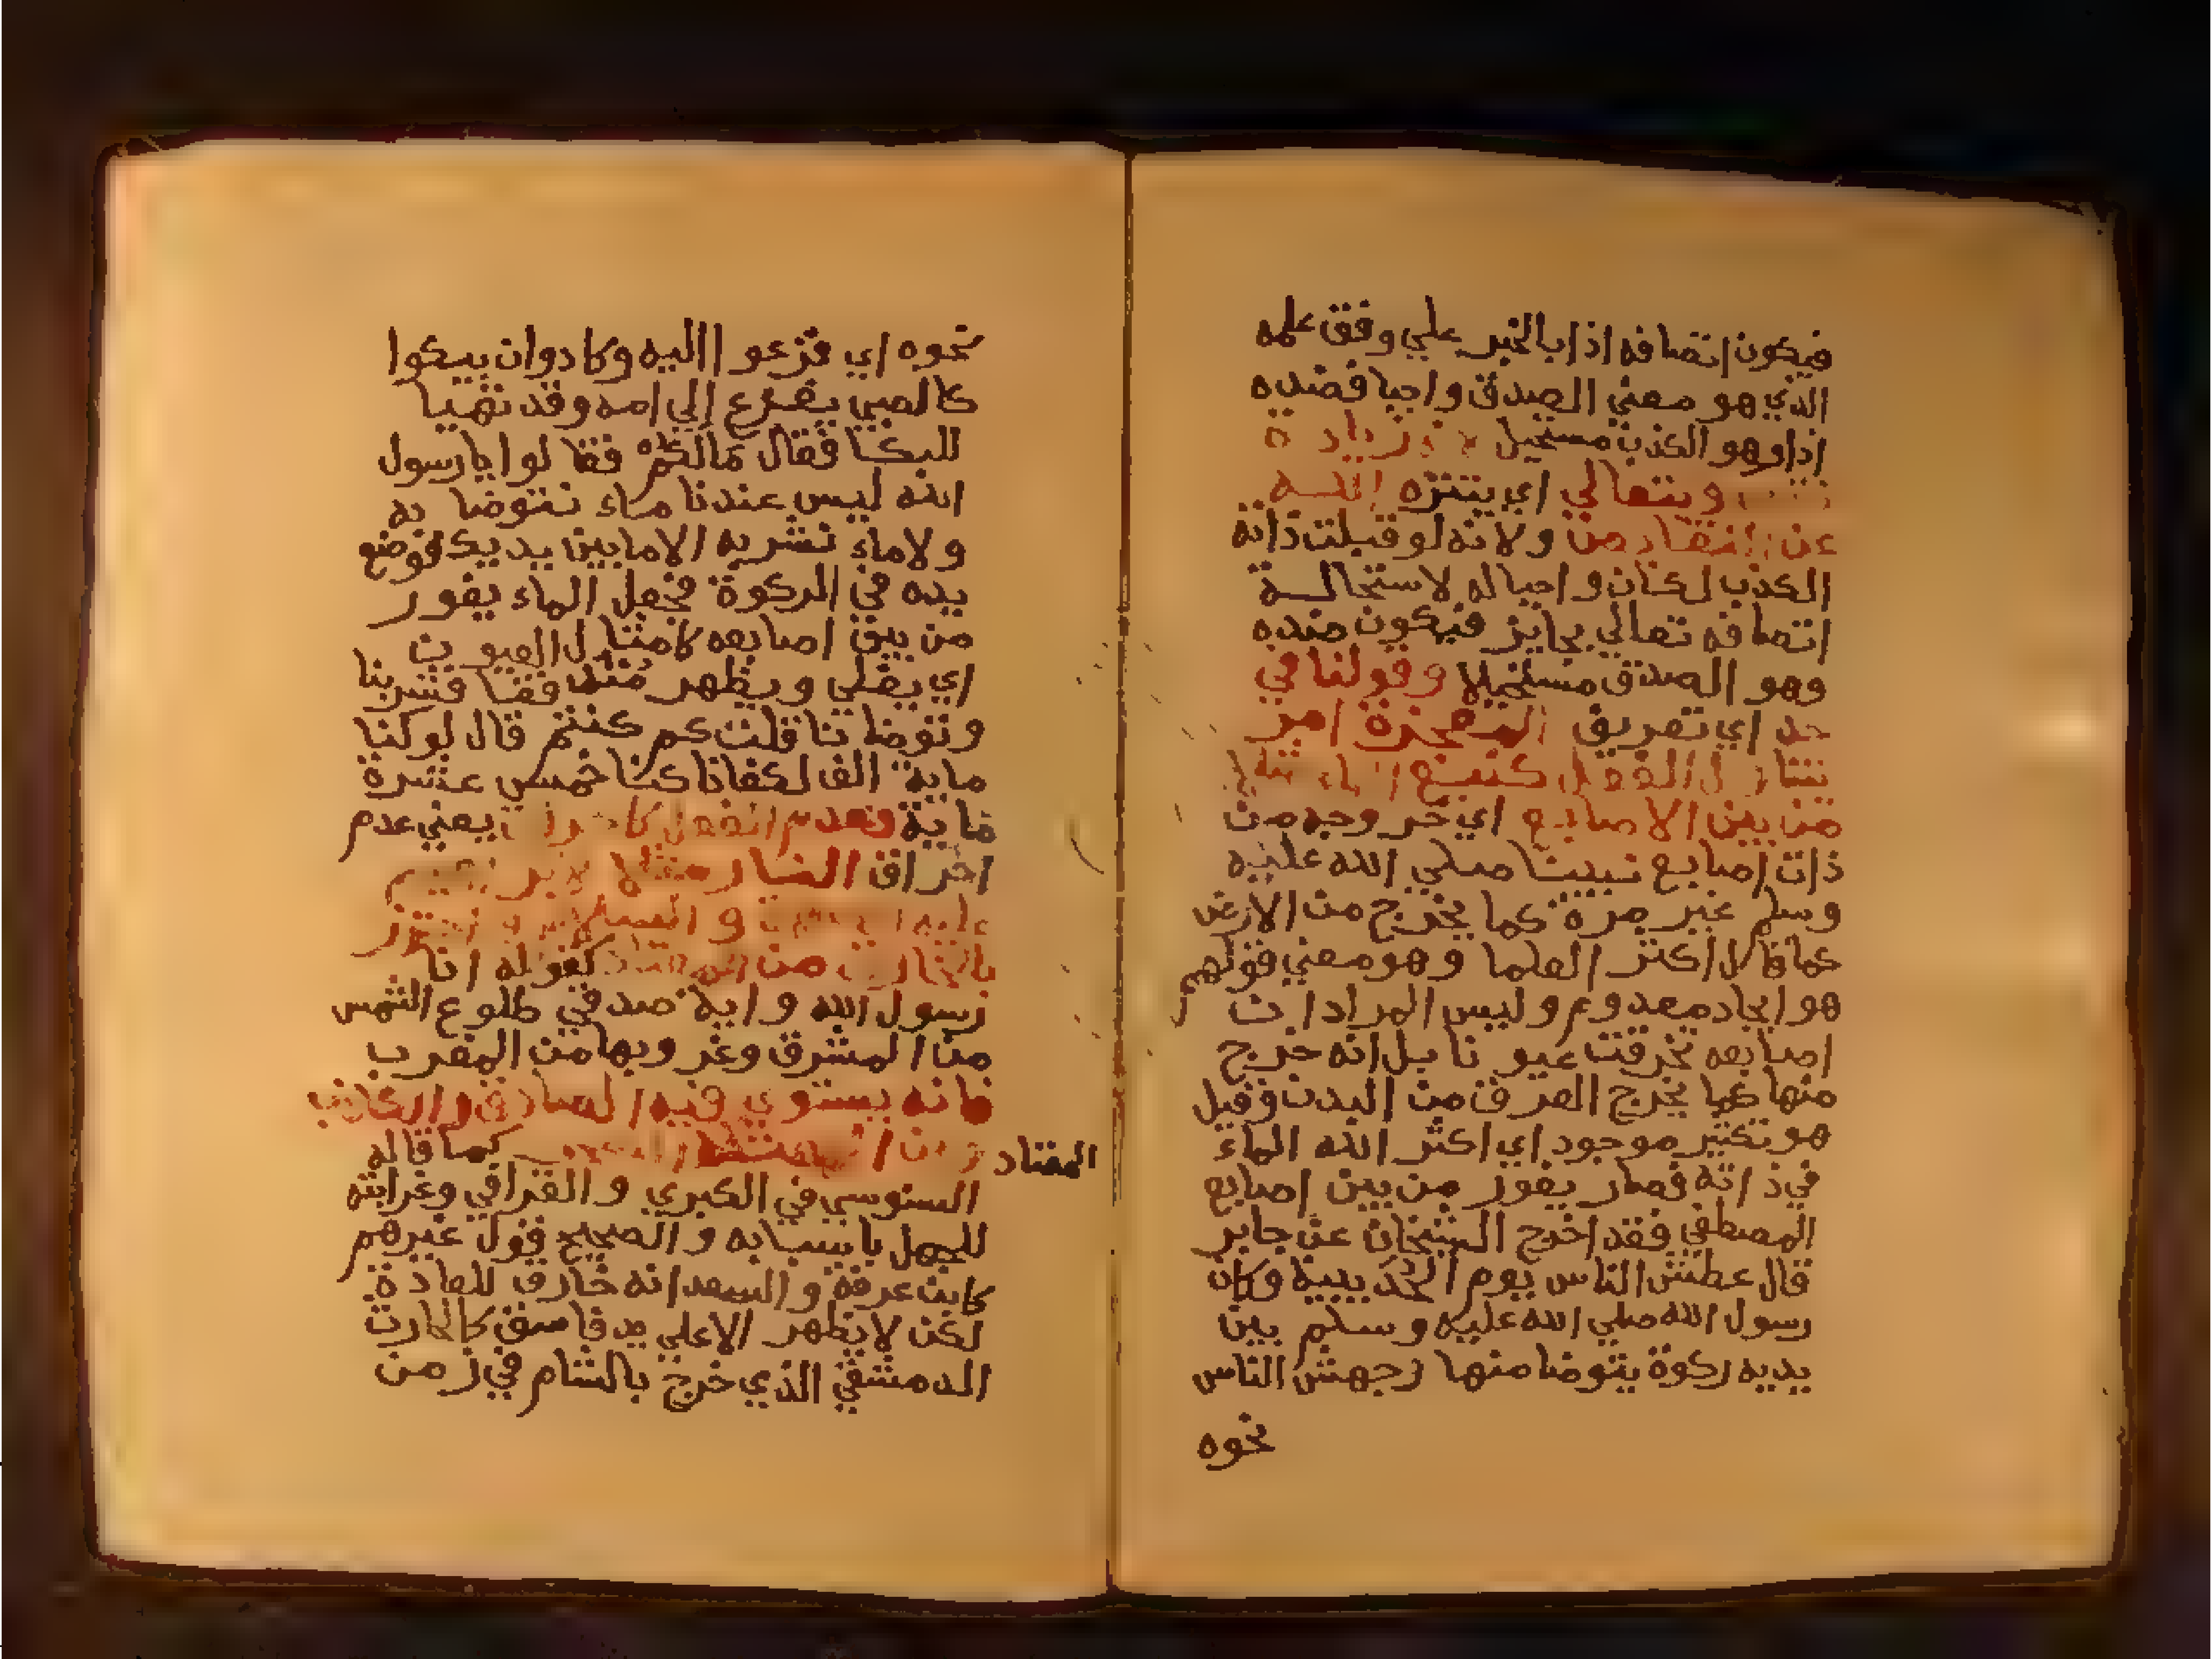 فيكون اتصافه اذا بالخبر علي وفق علمه
الذي هو معني الصدق واجبا فضده
اذا وهو الكذب مستحيل
ويتعالي اي يتنزه الله
عن ولانه لو قبلت ذاته
الكذب لكان واجبا له لاستحالة
اتصافه تعالي بجايز فيكون ضده
وهو الصدق مستحيلا وقولنا في
حد اي تعريف المعجزة امر
الفعل كنبع الماء مثلا
من بين الاصابع اي خروجه من
ذات اصابع نبينا صلي الله عليه
وسلم غير مرة كما يخرج من الارض
كما قال اكثر العلما وهو معني قولهم
هو ايجاد معدوم وليس المراد ان
اصابعه تخرقت عيونا بل انه خرج
منها كما يخرج العرق من البدن وقيل
هو تكثير موجود اي اكثر الله الماء
في ذاته فصار يفور من بين اصابع
المصطفي فقد اخرج الشيخان عن جابر
قال عطش الناس يوم الحديبية وكان
رسول الله صلي الله عليه وسلم بين
يديه ركوة يتوضا منها وجهش الناس
نحوه
نحوه اي فزعوا اليه وكادوا ان يبكوا
كالصبي يفزع الي امه وقد تهيا
للبكا فقال مالكم فقالوا يا رسول
الله ليس عندنا ماء نتوضا به
ولا ماء نشربه الا ما بين يديك فوضع
يده في الركوة فجعل الماء يفور
من بين اصابعه كامثال العيون
اي يغلي ويظهر متدفقا فشربنا
وتوضانا قلت كم كنتم قال لو كنا
ماية الف لكفانا كنا خمس عشرة
ماية وعدم الفعل يعني عدم
احراق النار مثلا
عليه والسلام
من كقوله انا
رسول الله واية صدقي طلوع الشمس
من المشرق وغروبها من المغرب
فانه يستوي فيه الصادق والكاذب
المعتاد كما قاله
السنوسي في الكبري والقرافي وغرابته
للجهل باسبابه والصحيح قول غيرهم
كابن عرفة والسعد انه خارق للعادة
لكن لا يظهر الا علي يد فاسق كالحارث
الدمشقي الذي خرج بالشام في زمن